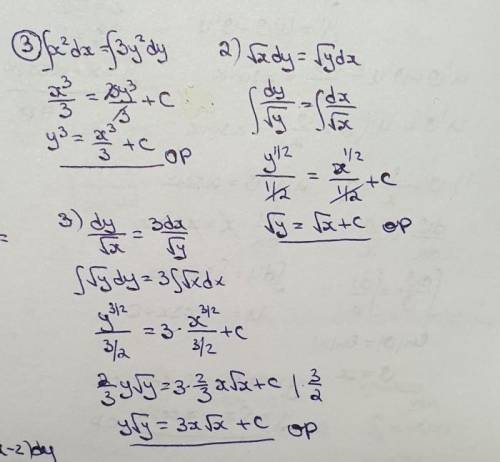 ③ ∫x²dx=∫3y²dy
x³/3 = 3y³/3 + C
y³ = x³/3 + C OP
2) √x dy = √y dx
∫dy/√y = ∫dx/√x
y^1/2 / 1/2 = x^1/2 / 1/2 + C
√y = √x + C OP
3) dy/√x = 3dx/√y
∫√y dy = 3∫√x dx
y^3/2 / 3/2 = 3 · x^3/2 / 3/2 + C
2/3 y√y = 3 · 2/3 x√x + C | · 3/2
y√y = 3x√x + C OP
=
x-2)dy